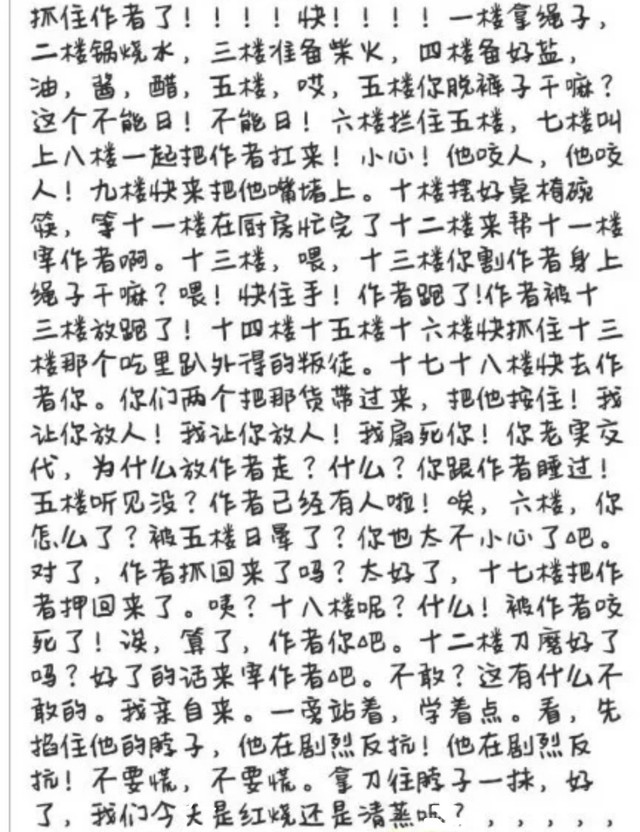 抓住作者了！！！！快！！！！一楼拿绳子，
二楼锅烧水，三楼准备柴火，四楼备好盐，
油，酱，醋，五楼，哎，五楼你脱裤子干嘛？
这个不能日！不能日！六楼拦住五楼，七楼叫
上八楼一起把作者扛来！小心！他咬人，他咬
人！九楼快来把他嘴堵上。十楼摆好桌椅碗
筷，等十一楼在厨房忙完了十二楼来帮十一楼
宰作者啊。十三楼，喂，十三楼你割作者身上
绳子干嘛？喂！快住手！作者跑了!作者被十
三楼放跑了！十四楼十五楼十六楼快抓住十三
楼那个吃里趴外得的叛徒。十七十八楼快去作
者你。你们两个把那货带过来，把他按住！我
让你放人！我让你放人！我扇死你！你老实交
代，为什么放作者走？什么？你跟作者睡过！
五楼听见没？作者已经有人啦！唉，六楼，你
怎么了？被五楼日晕了？你也太不小心了吧。
对了，作者抓回来了吗？太好了，十七楼把作
者押回来了。咦？十八楼呢？什么！被作者咬
死了！诶，算了，作者你吧。十二楼刀磨好了
吗？好了的话来宰作者吧。不敢？这有什么不
敢的。我亲自来。一旁站着，学着点。看，先
掐住他的脖子，他在剧烈反抗！他在剧烈反
抗！不要慌，不要慌。拿刀往脖子一抹，好
了，我们今天是红烧还是清蒸呢？，，，，，